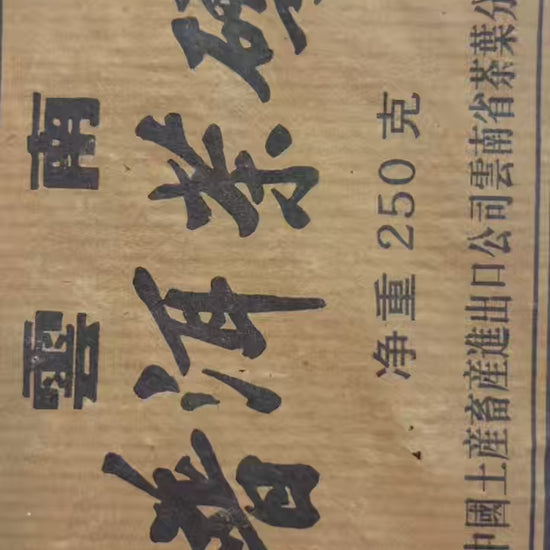 雲南
普洱茶磚
净重250克
中國土産畜産進出口公司雲南省茶葉分